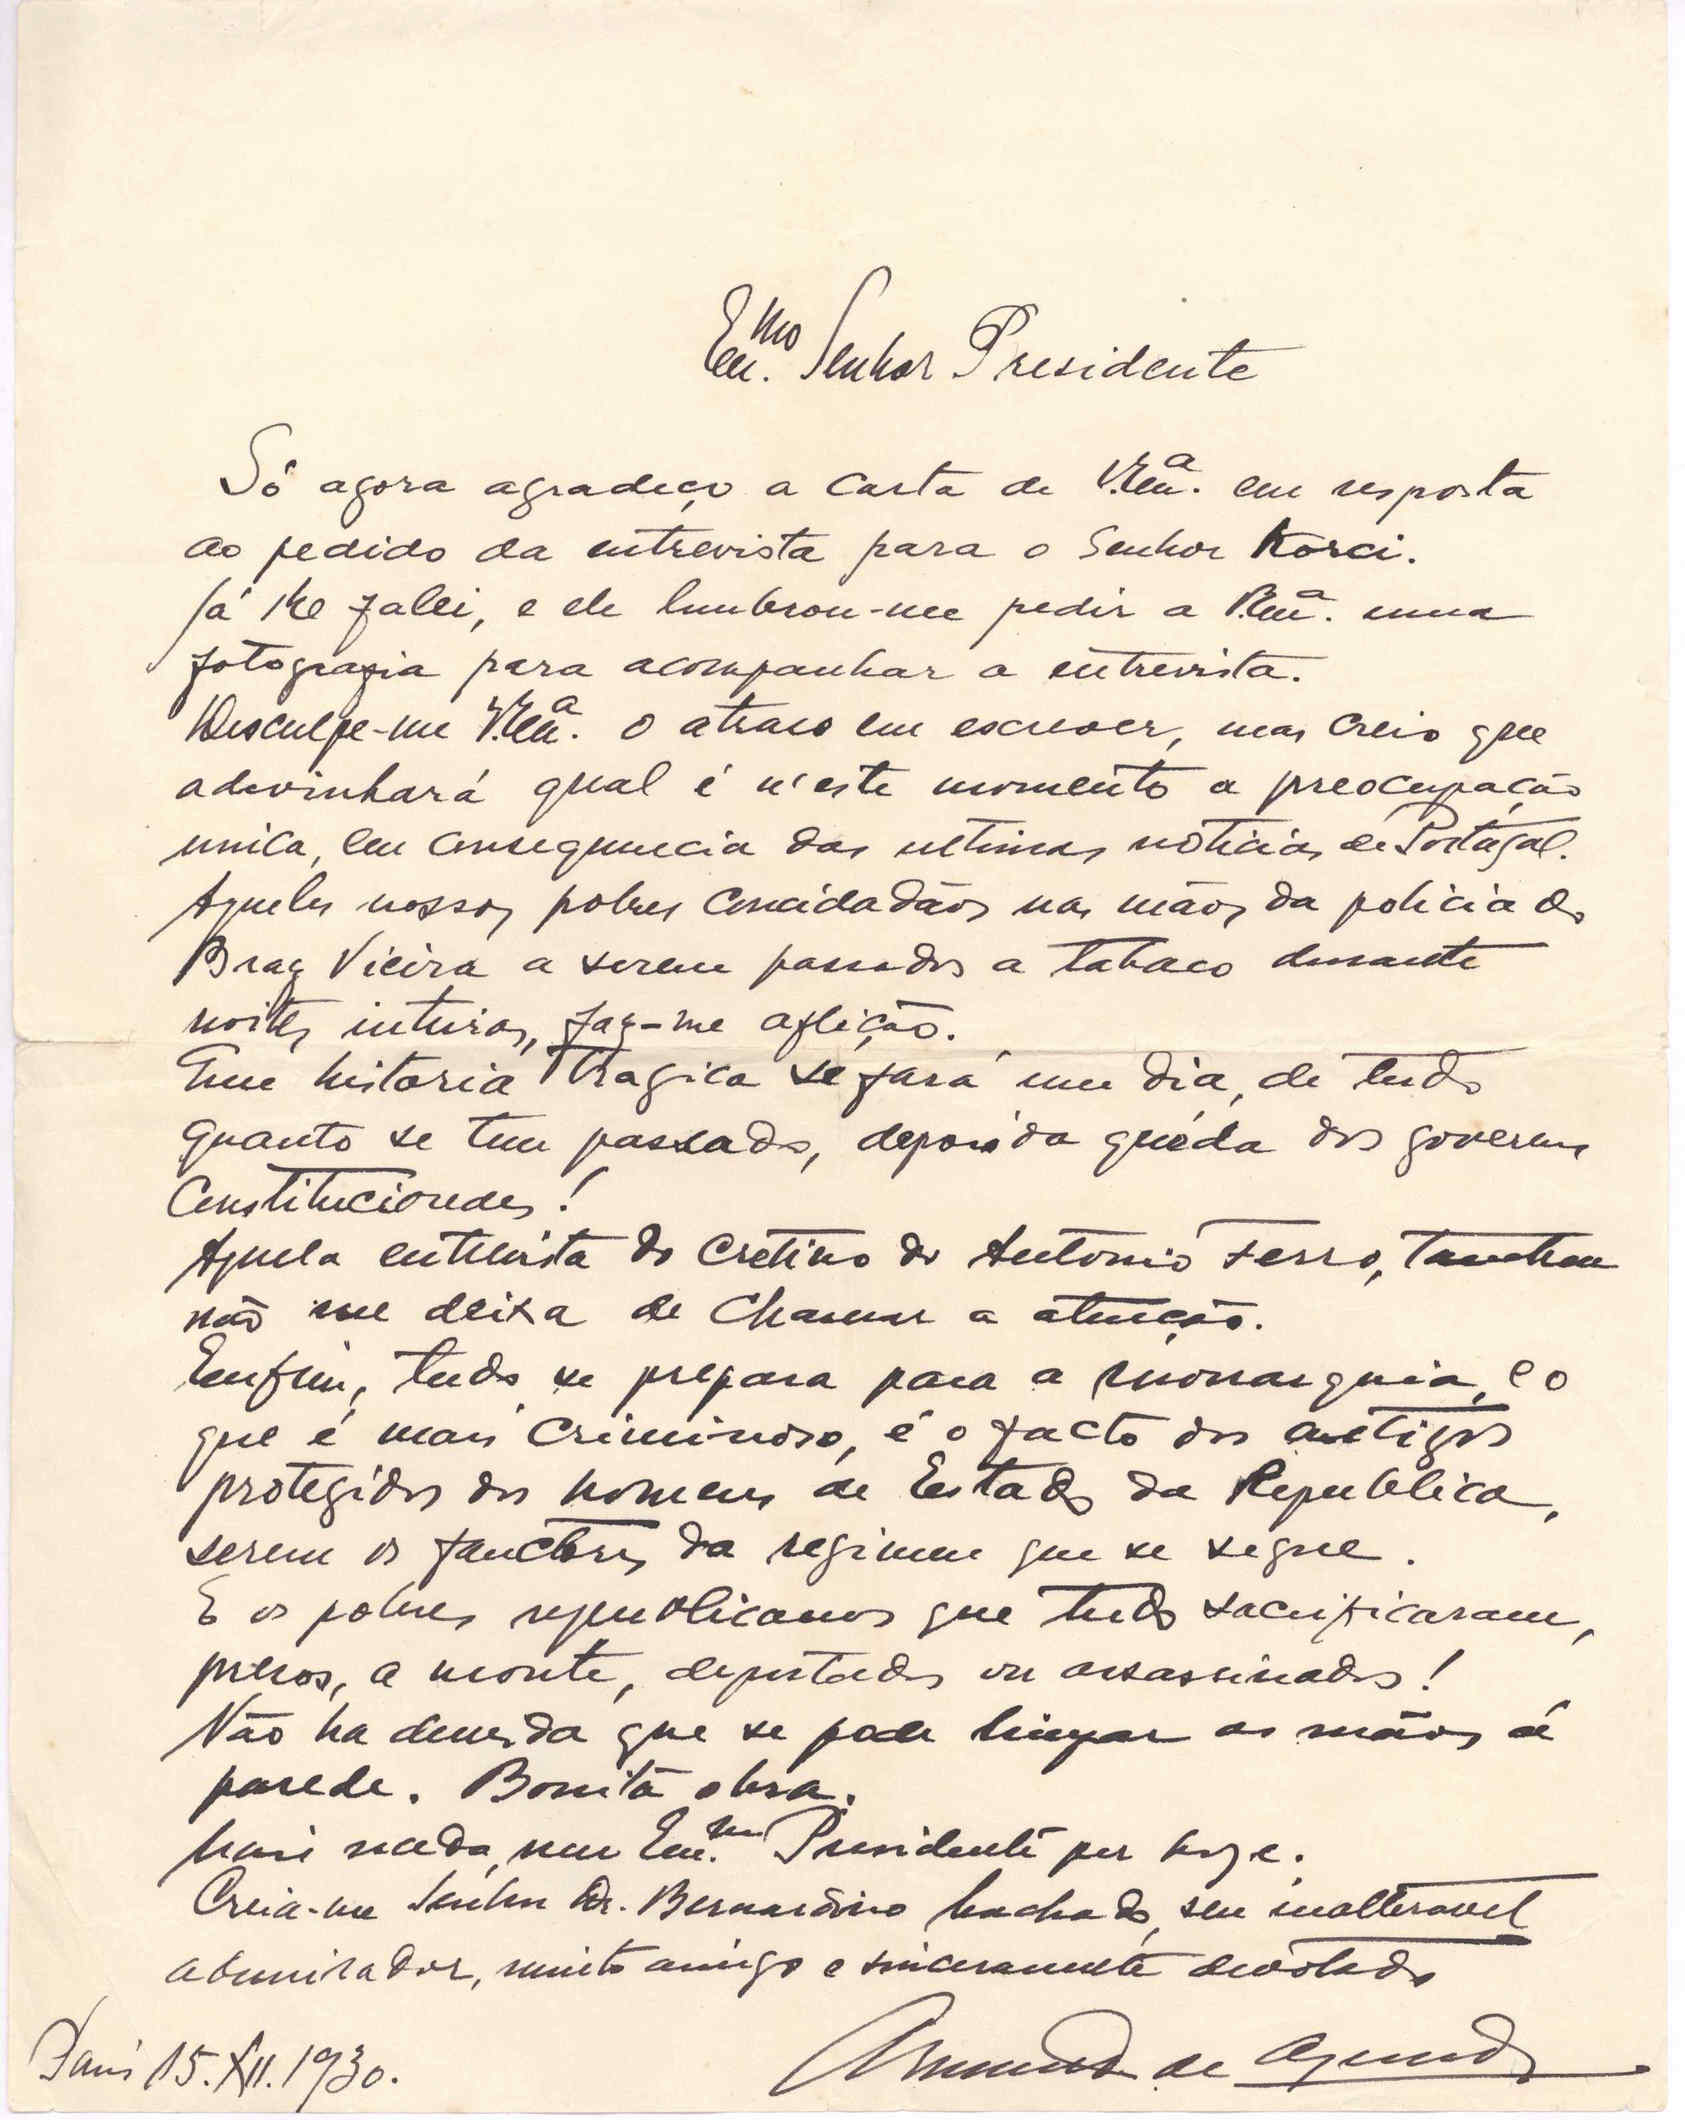 Exmo. Senhor Presidente
Só agora agradeço a carta de V.Exa. em resposta
ao pedido da entrevista para o Senhor Korci.
Já lhe falei, e ele lembrou-me pedir a V.Exa. uma
fotografia para acompanhar a entrevista.
Desculpe-me V.Exa. o atraso em escrever, mas creio que
adevinhará qual é n'este momento a preocupação
unica, em consequencia das ultimas noticias de Portugal.
Aqueles nossos pobres concidadãos nas mãos da policia do
Braz Vieira a serem passados a tabaco durante
noites inteiras, faz-me aflição.
Que historia tragica se fará um dia, de tudo
quanto se tem passado, depois da quéda dos governos
Constitucionaes!
Aquela entrevista do cretino do Antonio Ferro, tambem
não me deixa de chamar a atenção.
Emfim, tudo se prepara para a monarquia, e o
que é mais criminoso, é o facto dos antigos
protegidos dos homens de Estado da Republica,
serem os fauctores da regimen que se segue.
E os pobres republicanos que tudo sacrificaram,
presos, a monte, deportados ou assassinados!
Não ha duvida que se pode limpar as mãos á
parede. Bonita obra.
Mais nada, meu Exmo. Presidente por hoje.
Creia-me Senhor Dr. Bernardino Machado, seu inalteravel
admirador, muito amigo e sinceramente devotado
Paris 15.XII.1930.
de